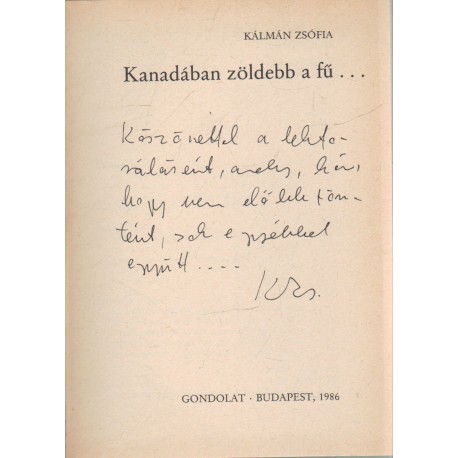 KÁLMÁN ZSÓFIA
Kanadában zöldebb a fű . . .
Köszönettel a lekto-
rálásért, amely, kár,
hogy nem előbb tör-
tént, sok egyébbel
együtt . . . .
KZs.
GONDOLAT · BUDAPEST, 1986